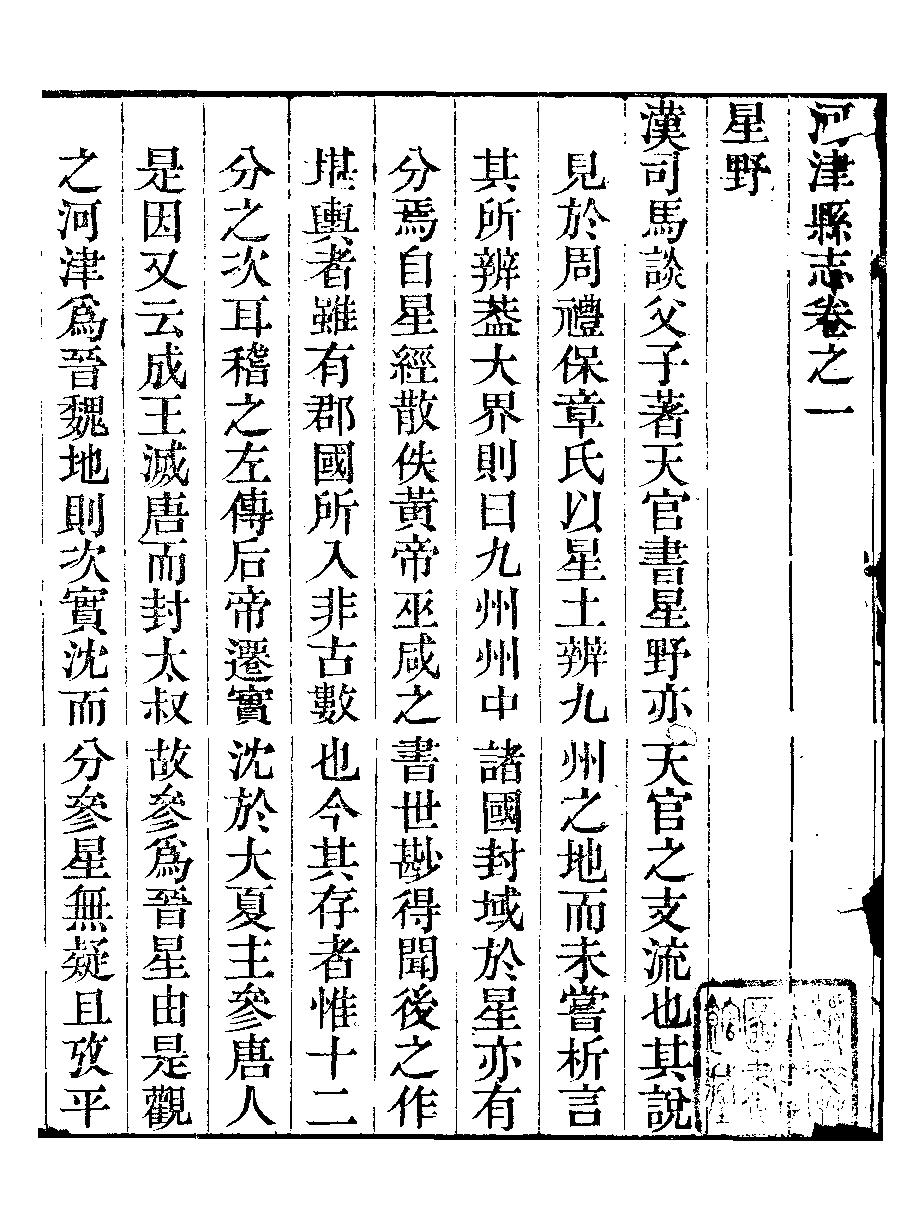 河津縣志卷之一
星野
漢司馬談父子著天官書星野亦天官之支流也其說
見於周禮保章氏以星土辨九州之地而未嘗析言
其所辨葢大界則曰九州州中諸國封域於星亦有
分焉自星經散佚黃帝巫咸之書世尠得聞後之作
堪輿者雖有郡國所入非古數也今其存者惟十二
分之次耳稽之左傳后帝遷實沈於大夏主參唐人
是因又云成王滅唐而封太叔故參爲晉星由是觀
之河津爲晉魏地則次實沈而分參星無疑且攷平